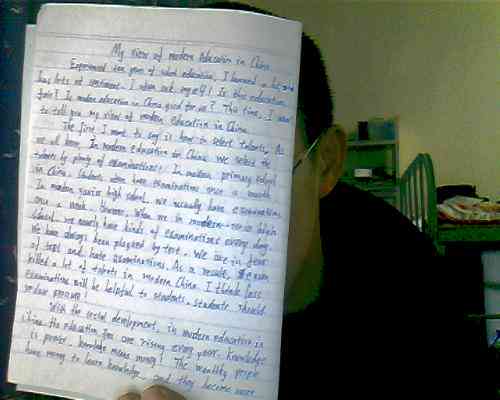 My view of modern education in China
Experienced ten years of school education, I learned a lot, also
has lots of sentiment. I often ask myself: Is this education
fair? Is modern education in China good for us? This time, I want
to tell you my view of modern education in China.
The first, I want to say is how to select talents. As
we all know, In modern education in China we select the
talents by plenty of examinations. In modern primary school
in China, students often have examinations once a month
In modern junior high school, we usually have examinations
once a week. However, When we in modern senior high
school, we nearly have kinds of examinations every day.
We have always been plagued by test. We are in fear
of test and hate examinations. As a result, exam
killed a lot of talents in modern China. I think less
examinations will be helpful to students. students should
reduce pressure!
With the social development, in modern education in
China, the education fees are rising every year. Knowledge
is power, knowledge means money! The wealthy people
have money to learn knowledge and they become more